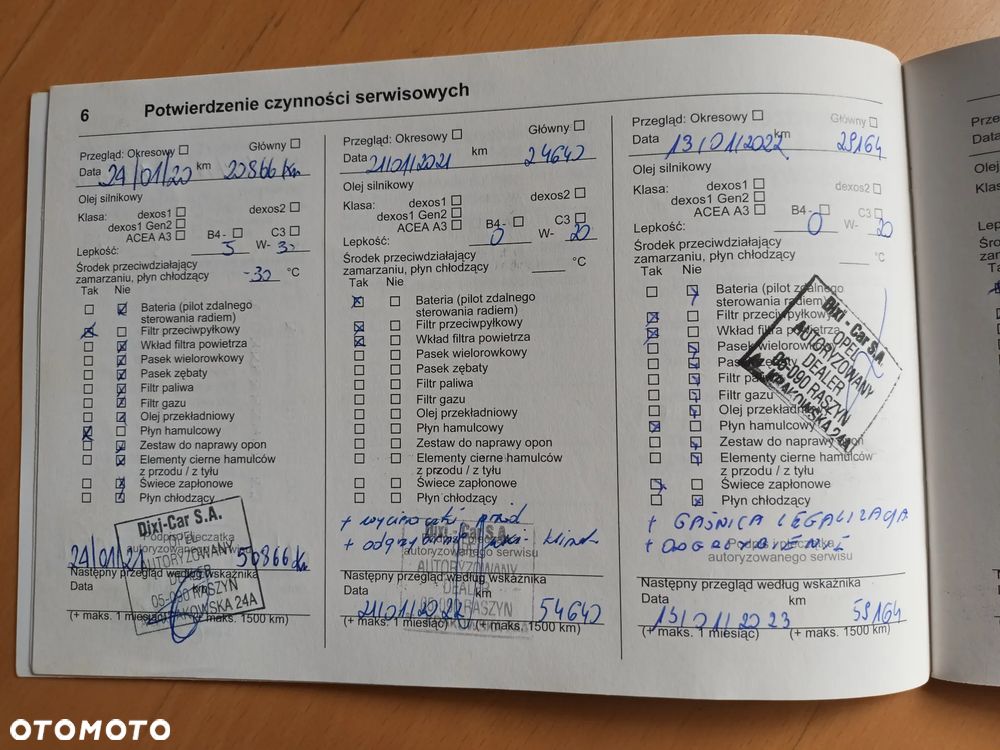 6 Potwierdzenie czynności serwisowych
Przegląd: Okresowy Główny
Data 24/01/20 km 20866 km
Olej silnikowy
Klasa: dexos1 dexos2
dexos1 Gen2
ACEA A3 B4- C3
Lepkość: 5 W- 30
Środek przeciwdziałający
zamarzaniu, płyn chłodzący -30 °C
Tak Nie
Bateria (pilot zdalnego
sterowania radiem)
Filtr przeciwpyłkowy
Wkład filtra powietrza
Pasek wielorowkowy
Pasek zębaty
Filtr paliwa
Filtr gazu
Olej przekładniowy
Płyn hamulcowy
Zestaw do naprawy opon
Elementy cierne hamulców
z przodu / z tyłu
Świece zapłonowe
Płyn chłodzący
Dixi-Car S.A.
OPEL
AUTORYZOWANY
DEALER
05-090 RASZYN
KRAKOWSKA 24A
autoryzowanego serwisu
24/01/21 50866 km
Następny przegląd według wskaźnika
Data
(+ maks. 1 miesiąc) maks. 1500 km)
Przegląd: Okresowy Główny
Data 21/01/2021 km 24640
Olej silnikowy
Klasa: dexos1 dexos2
dexos1 Gen2
ACEA A3 B4- C3
Lepkość: 0 W- 20
Środek przeciwdziałający
zamarzaniu, płyn chłodzący °C
Tak Nie
Bateria (pilot zdalnego
sterowania radiem)
Filtr przeciwpyłkowy
Wkład filtra powietrza
Pasek wielorowkowy
Pasek zębaty
Filtr paliwa
Filtr gazu
Olej przekładniowy
Płyn hamulcowy
Zestaw do naprawy opon
Elementy cierne hamulców
z przodu / z tyłu
Świece zapłonowe
Płyn chłodzący
+ wycieraczki przód
Dixi-Car S.A.
autoryzowanego serwisu
AUTORYZOWANY
DEALER
05-090 RASZYN
Następny przegląd według wskaźnika
Data km
21/01/2022 54640
(+ maks. 1 miesiąc) (+ maks. 1500 km)
Przegląd: Okresowy Główny
Data 13/01/2022 km 29164
Olej silnikowy
Klasa: dexos1 dexos2
dexos1 Gen2
ACEA A3 B4- C3
Lepkość: 0 W- 20
Środek przeciwdziałający
zamarzaniu, płyn chłodzący °C
Tak Nie
Bateria (pilot zdalnego
sterowania radiem)
Filtr przeciwpyłkowy
Wkład filtra powietrza
Pasek wielorowkowy
Pasek zębaty
Filtr paliwa
Filtr gazu
Olej przekładniowy
Płyn hamulcowy
Zestaw do naprawy opon
Elementy cierne hamulców
z przodu / z tyłu
Świece zapłonowe
Płyn chłodzący
Dixi-Car S.A.
OPEL
AUTORYZOWANY
DEALER
05-090 RASZYN
KRAKOWSKA 24A
+ GAŚNICA LEGALIZACJA
+ ODGRZYBIENIE
Podpis i pieczątka
autoryzowanego serwisu
Następny przegląd według wskaźnika
Data km
13/01/2023 59164
(+ maks. 1 miesiąc) (+ maks. 1500 km)
OTOMOTO